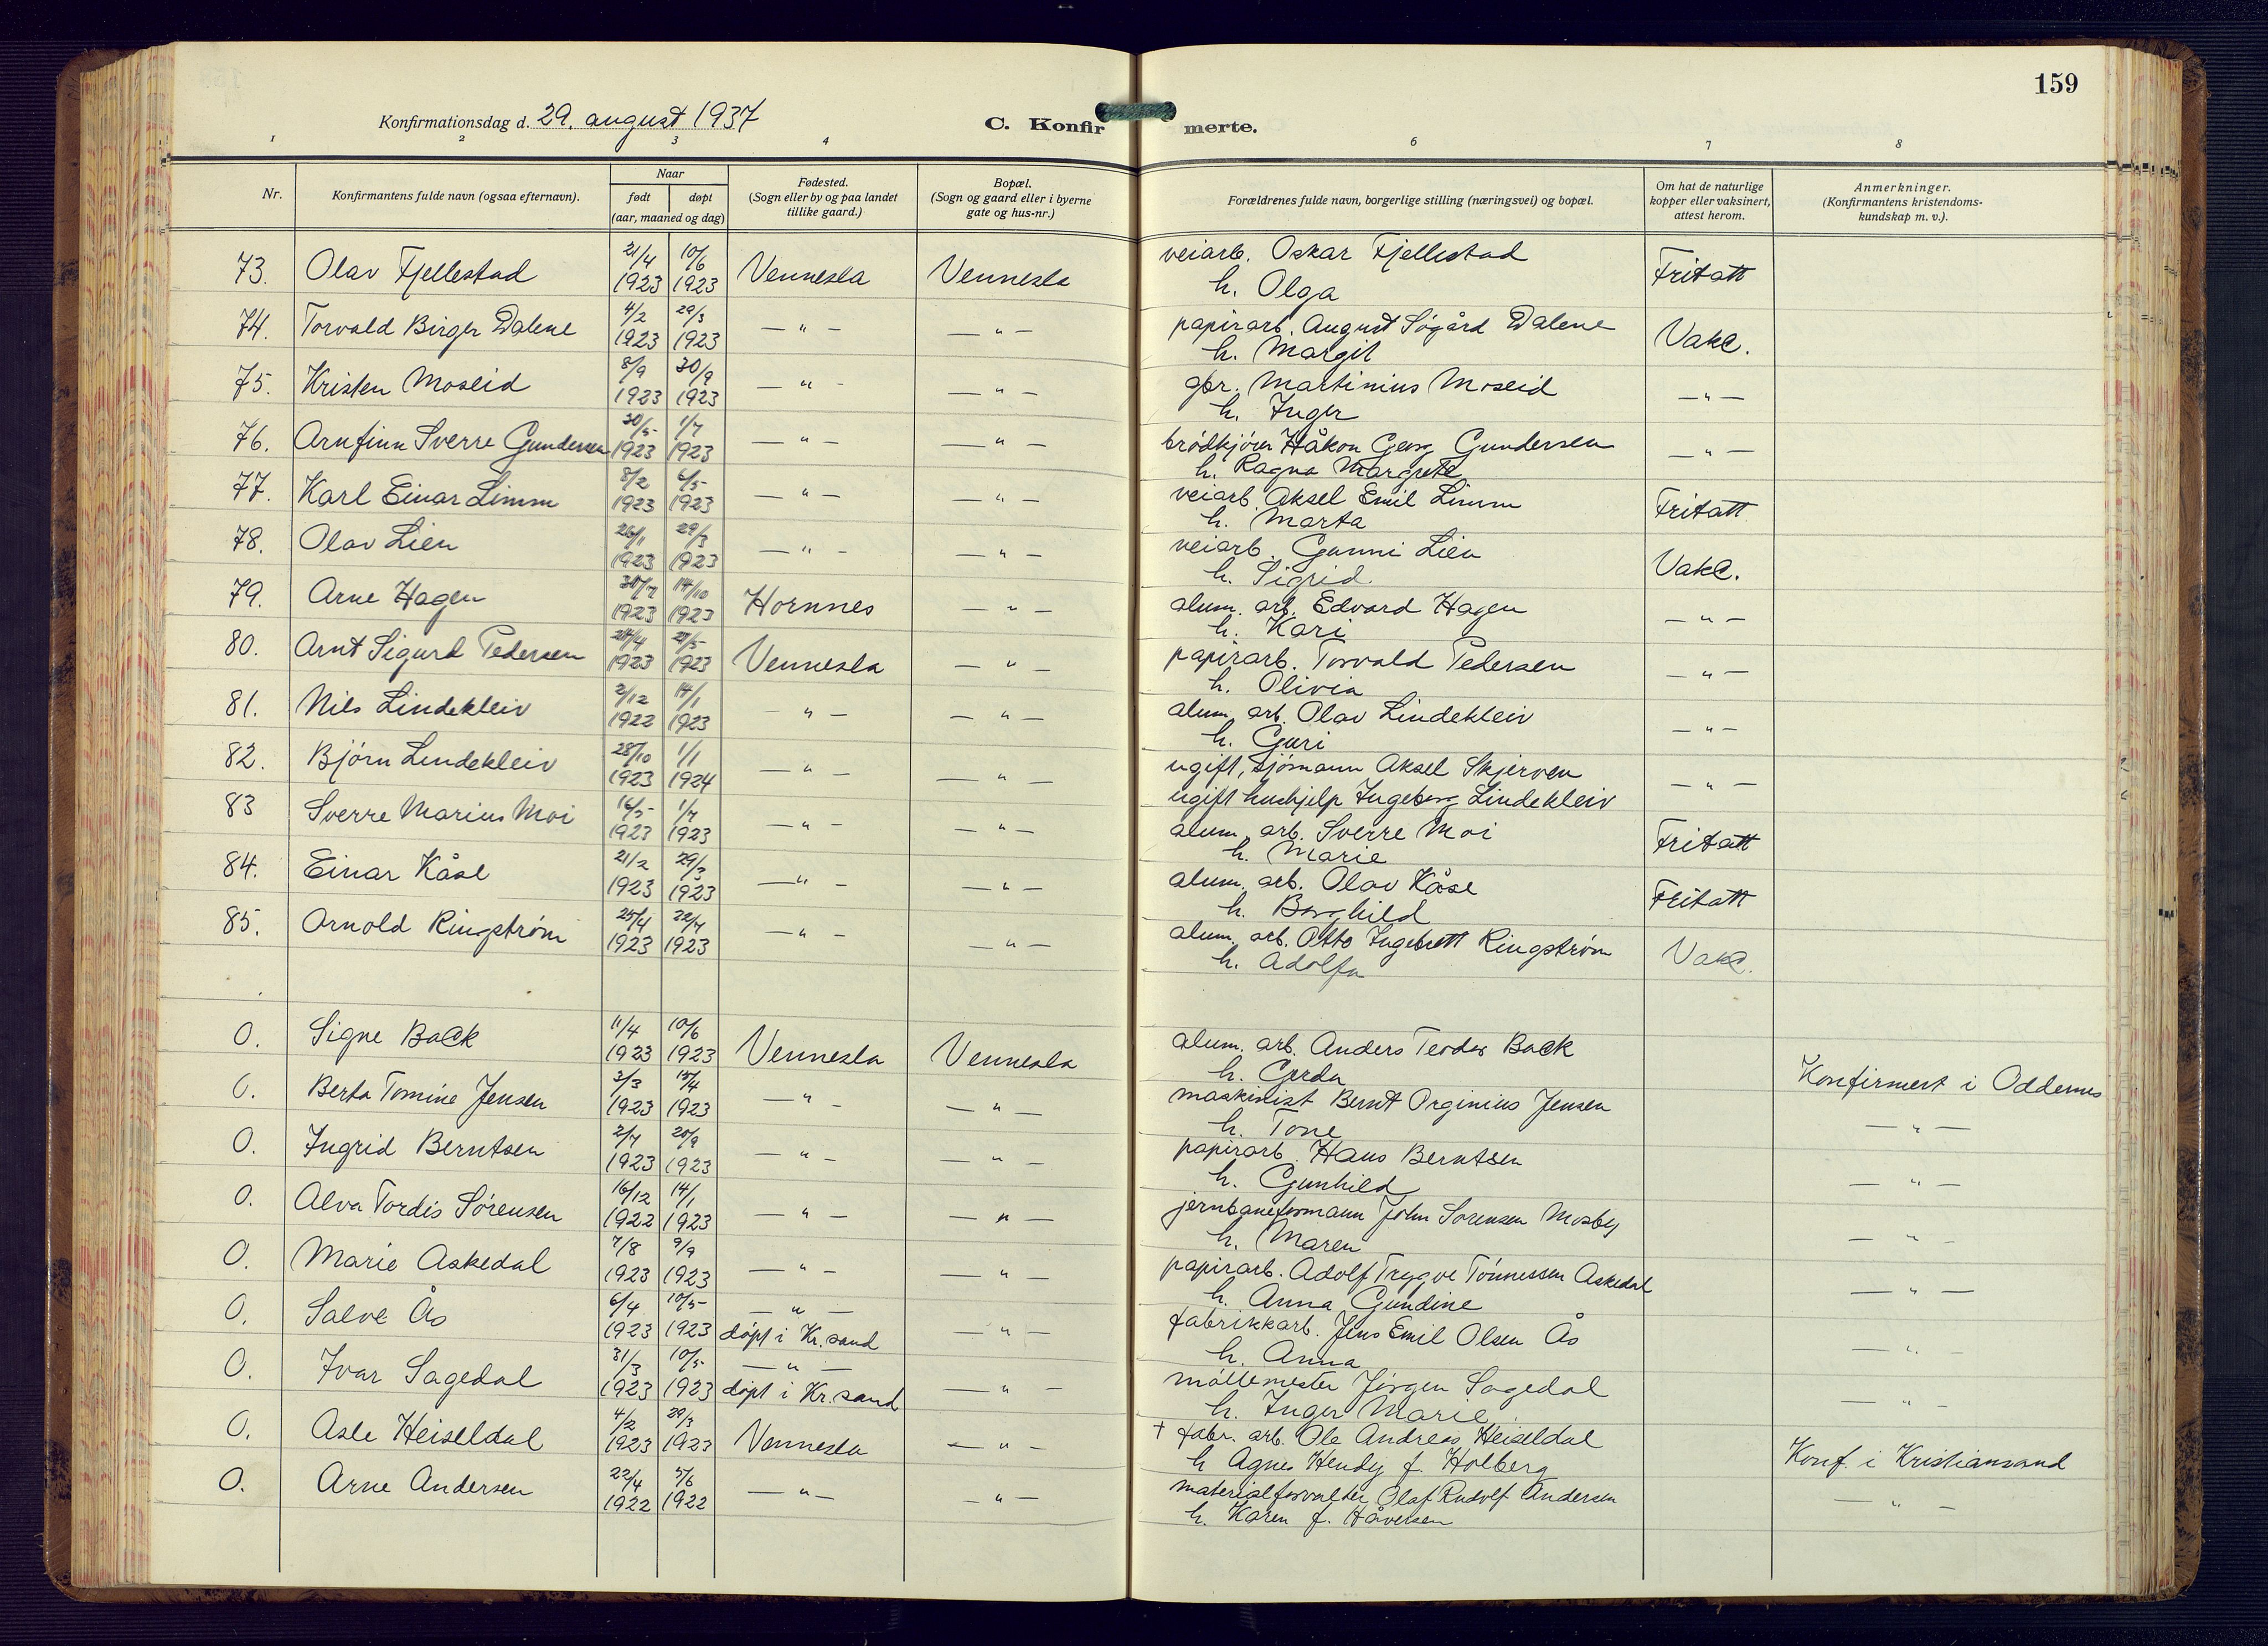 159
Konfirmationsdag d. 29. august 1937
C. Konfirmerte.
1 2 3 4 6 7 8
Nr.
Konfirmantens fulde navn (ogsaa efternavn).
Naar
født døpt
(aar, maaned og dag)
Fødested.
(Sogn eller by og paa landet
tillike gaard.)
Bopæl.
(Sogn og gaard eller i byerne
gate og hus-nr.)
Forældrenes fulde navn, borgerlige stilling (næringsvei) og bopæl.
Om hat de naturlige
kopper eller vaksinert,
attest herom.
Anmerkninger.
(Konfirmantens kristendoms-
kundskap m. v.).
73. Olav Fjellestad 21/4 1923 10/6 1923 Vennesla Vennesla veiarb. Oskar Fjellestad Fritatt
h. Olga
74. Torvald Birger Dalene 4/2 1923 29/3 1923 — " — — " — papirarb. August Søgård Dalene Vakc.
h. Margit
75. Kristen Moseid 8/9 1923 30/9 1923 — " — — " — gbr. Martinius Moseid — " —
h. Inger
76. Arnfinn Sverre Gundersen 30/5 1923 1/7 1923 — " — — " — brødkjører Håkon Georg Gundersen — " —
h. Ragna Margrete
77. Karl Einar Limm 8/2 1923 6/5 1923 — " — — " — veiarb. Aksel Emil Limm Fritatt
h. Marta
78. Olav Lien 26/1 1923 29/3 1923 — " — — " — veiarb. Gunni Lien Vakc.
h. Sigrid.
79. Arne Hagen 30/7 1923 14/10 1923 Hornnes — " — alum. arb. Edvard Hagen — " —
h. Kari
80. Arnt Sigurd Pedersen 24/4 1923 27/5 1923 Vennesla — " — papirarb. Torvald Pedersen — " —
h. Olivia
81. Nils Lindekleiv 2/12 1922 14/1 1923 — " — — " — alum. arb. Olav Lindekleiv — " —
h. Guri
82. Bjørn Lindekleiv 28/10 1923 1/1 1924 — " — — " — ugift, sjømann Aksel Skjerven — " —
ugift hushjelp Ingeborg Lindekleiv
83 Sverre Marius Moi 16/5 1923 1/7 1923 — " — — " — alum. arb. Sverre Moi Fritatt
h. Marie
84. Einar Kåse 21/2 1923 29/3 1923 — " — — " — alum. arb. Olav Kåse Fritatt
h. Borghild
85. Arnold Ringstrøm 25/4 1923 22/7 1923 — " — — " — alum. arb. Otto Ingebrett Ringstrøm Vakc.
h. Adolfa
O. Signe Back 11/4 1923 10/6 1923 Vennesla Vennesla alum. arb. Anders Teodor Back Konfirmert i Oddernes
h. Gerda
O. Berta Tomine Jensen 3/3 1923 15/4 1923 — " — — " — maskinist Bernt Orginius Jensen — " —
h. Tone
O. Ingrid Berntsen 2/7 1923 20/9 1923 — " — — " — papirarb. Hans Berntsen — " —
h. Gunhild
O. Alva Tordis Sørensen 16/12 1922 14/1 1923 — " — — " — jernbaneformann John Sørensen Mosby — " —
h. Maren
O. Marie Askedal 7/8 1923 9/9 1923 — " — — " — papirarb. Adolf Trygve Tønnessen Askedal — " —
h. Anna Gundine
O. Salve Ås 6/4 1923 10/5 1923 — " — døpt i Kr.sand — " — fabrikkarb. Jens Emil Olsen Ås — " —
h. Anna
O. Ivar Sagedal 31/3 1923 10/5 1923 — " — døpt i Kr.sand — " — møllemester Jørgen Sagedal — " —
h. Inger Marie
O. Asle Heiseldal 4/2 1923 29/3 1923 Vennesla — " — † fabr. arb. Ole Andreas Heiseldal Konf. i Kristiansand
h Agnes Hendy f. Holberg
O. Arne Andersen 22/4 1922 5/6 1922 — " — — " — materialforvalter Olaf Rudolf Andersen — " —
h. Karen f. Håversen